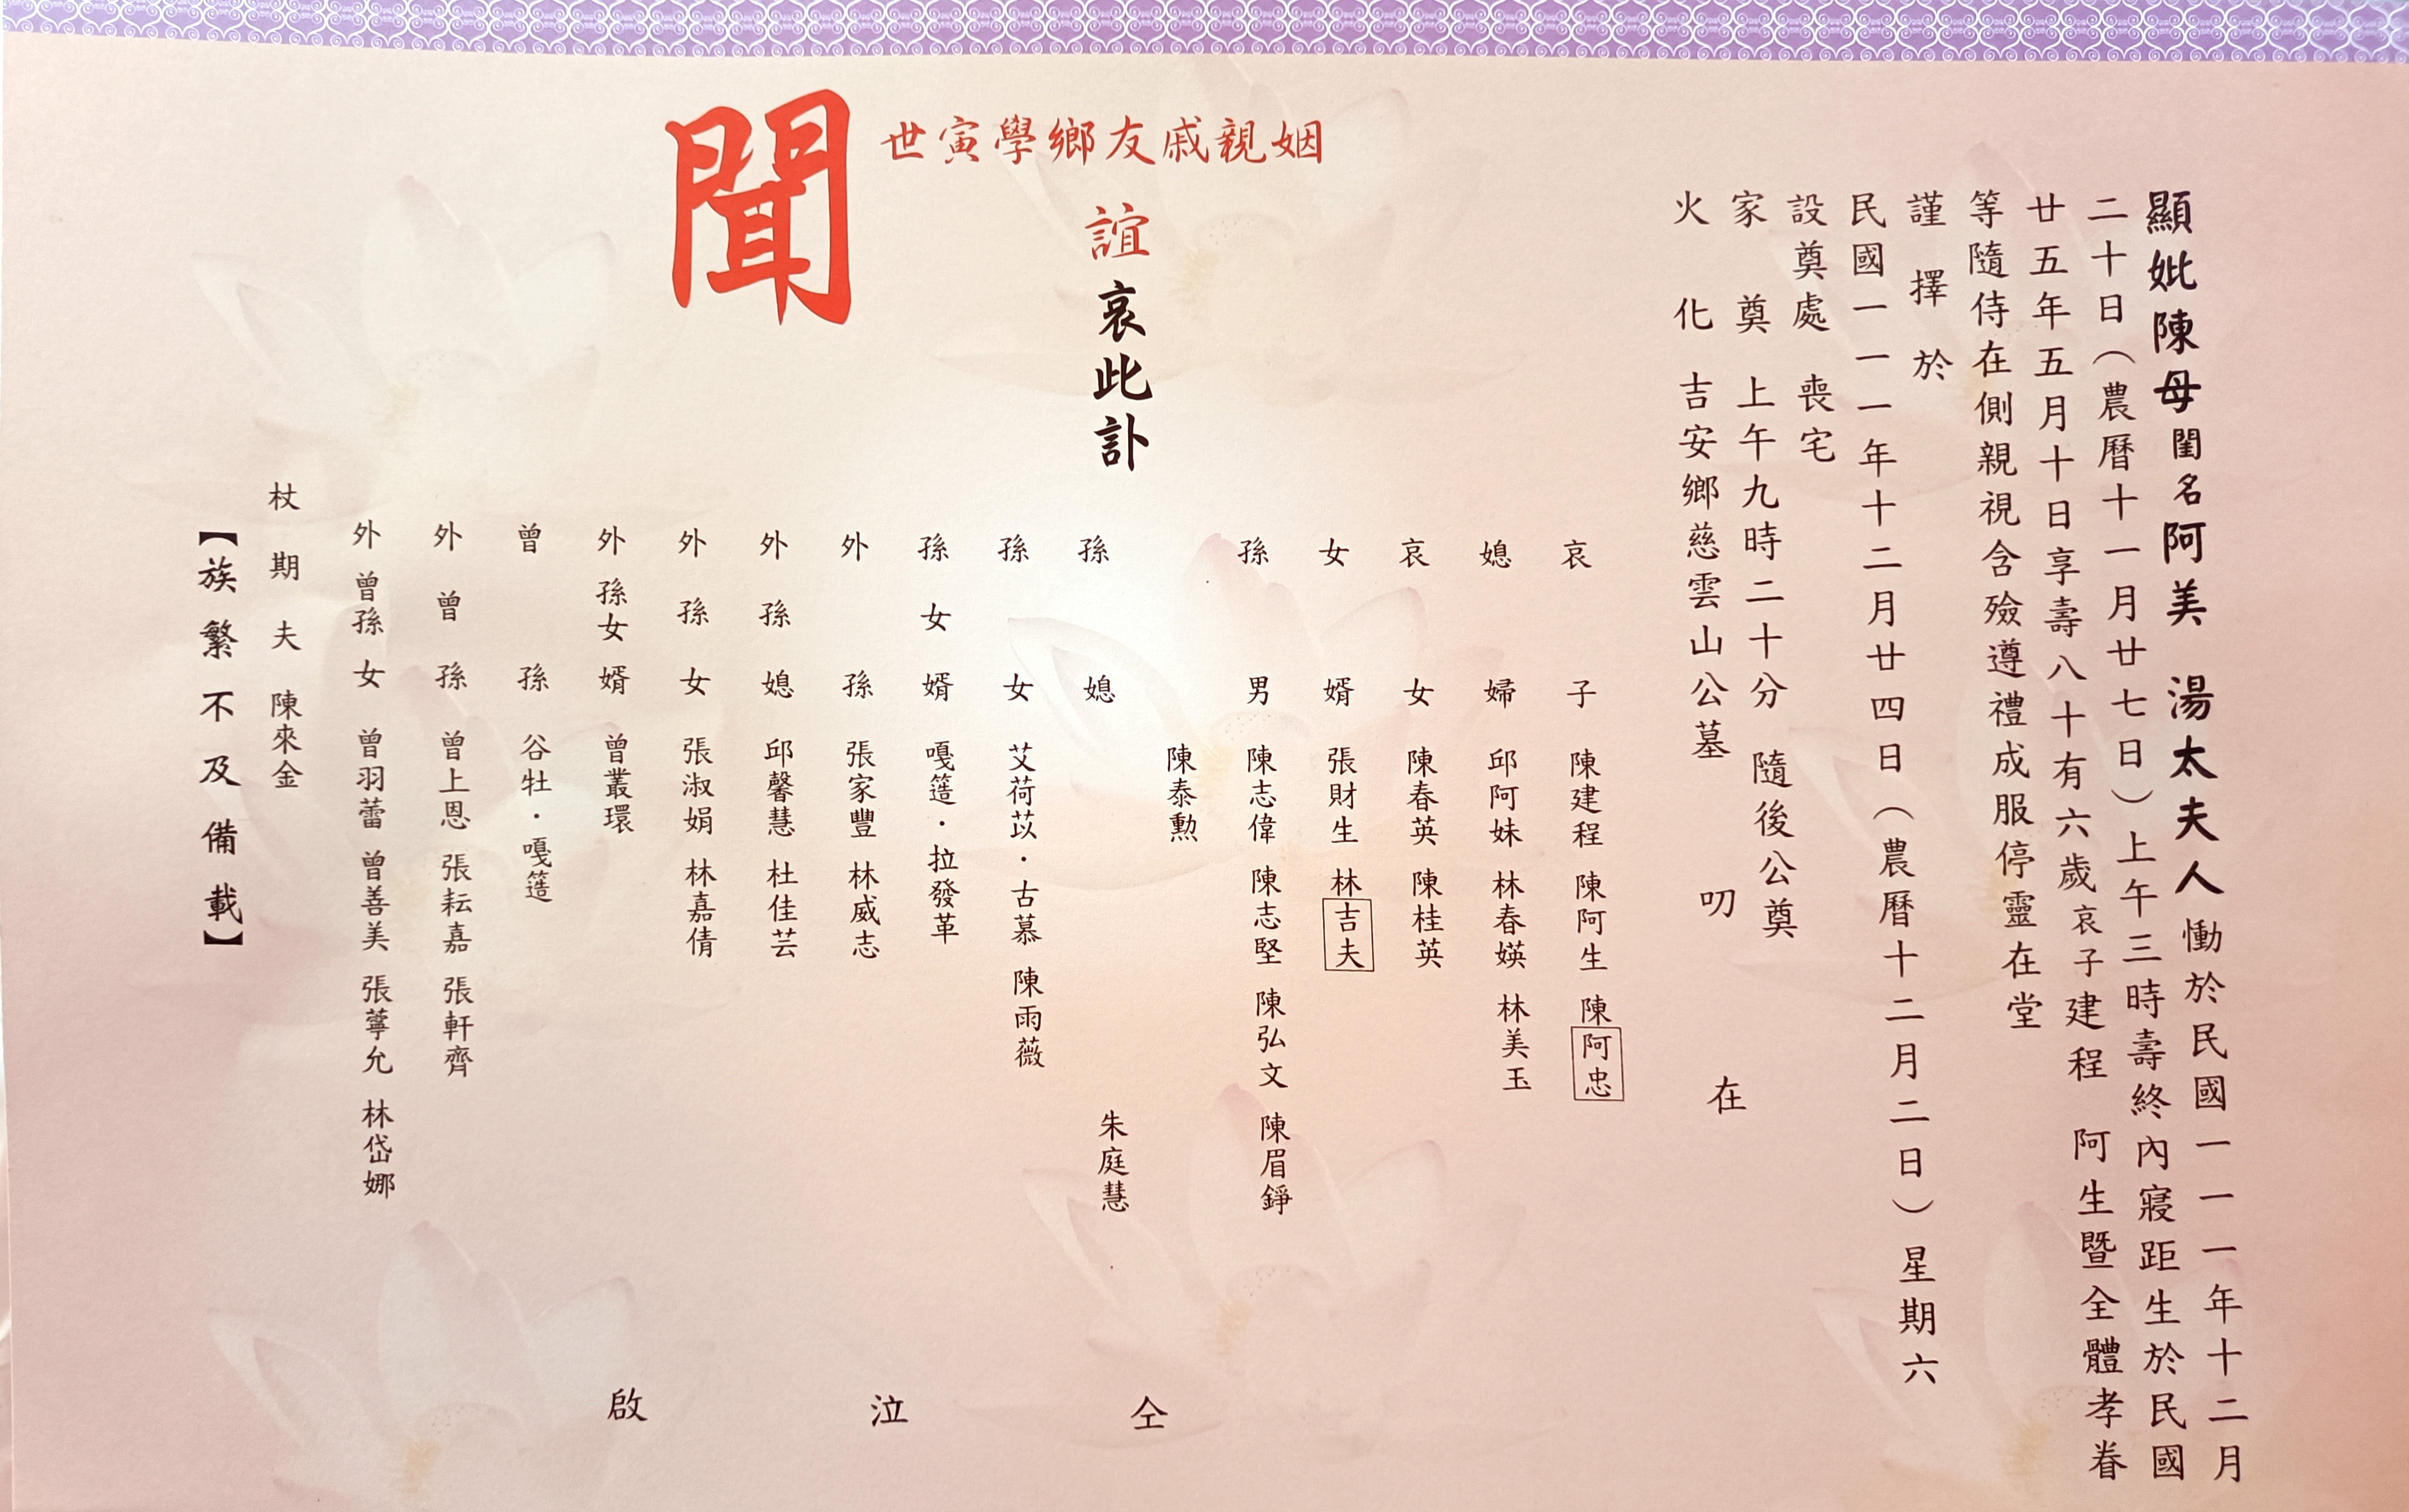 顯妣陳母閨名阿美 湯太夫人慟於民國一一一年十二月
二十日（農曆十一月廿七日）上午三時壽終內寢距生於民國
廿五年五月十日享壽八十有六歲哀子建程 阿生暨全體孝眷
等隨侍在側親視含殮遵禮成服停靈在堂
謹擇於
民國一一一年十二月廿四日（農曆十二月二日）星期六
設奠處 喪宅
家奠 上午九時二十分 隨後公奠
火化 吉安鄉慈雲山公墓 叨 在
姻親戚友鄉學寅世
誼哀此訃
聞
哀子 陳建程 陳阿生 陳阿忠
媳婦 邱阿妹 林春媖 林美玉
哀女 陳春英 陳桂英
女婿 張財生 林吉夫
孫男 陳志偉 陳志堅 陳弘文 陳眉錚
陳泰勳
孫媳 朱庭慧
孫女 艾荷苡·古慕 陳雨薇
孫女婿 嘎簉·拉發革
外孫 張家豐 林威志
外孫媳 邱馨慧 杜佳芸
外孫女 張淑娟 林嘉倩
外孫女婿 曾叢環
曾孫 谷牡·嘎簉
外曾孫 曾上恩 張耘嘉 張軒齊
外曾孫女 曾羽蕾 曾善美 張薴允 林岱娜
杖期夫 陳來金
【族繁不及備載】
仝 泣 啟